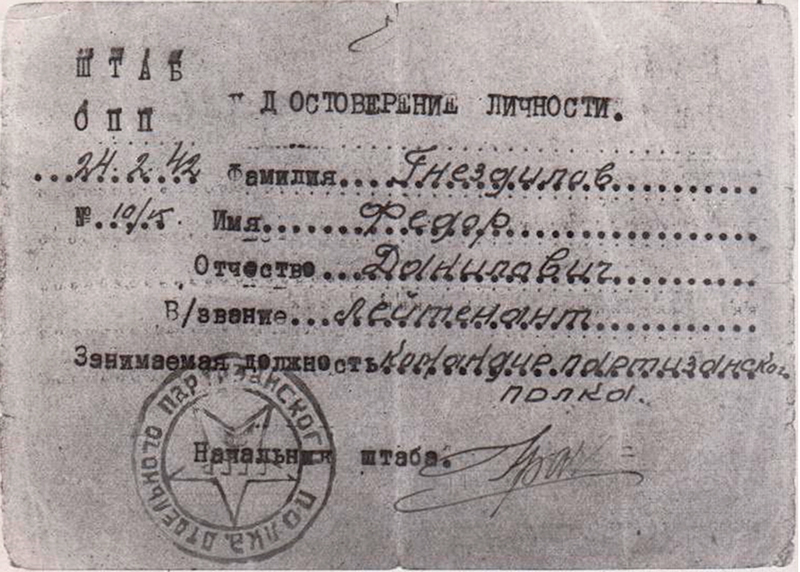 ШТАБ
ОПП
УДОСТОВЕРЕНИЕ ЛИЧНОСТИ.
24.2.42 Фамилия Гнездилов
№ 10/15 Имя Федор
Отчество Данилович
В/звание лейтенант
Занимаемая должность командир партизанског
полка.
Начальник штаба.
ОТДЕЛЬНОГО ПАРТИЗАНСКОГО ПОЛКА